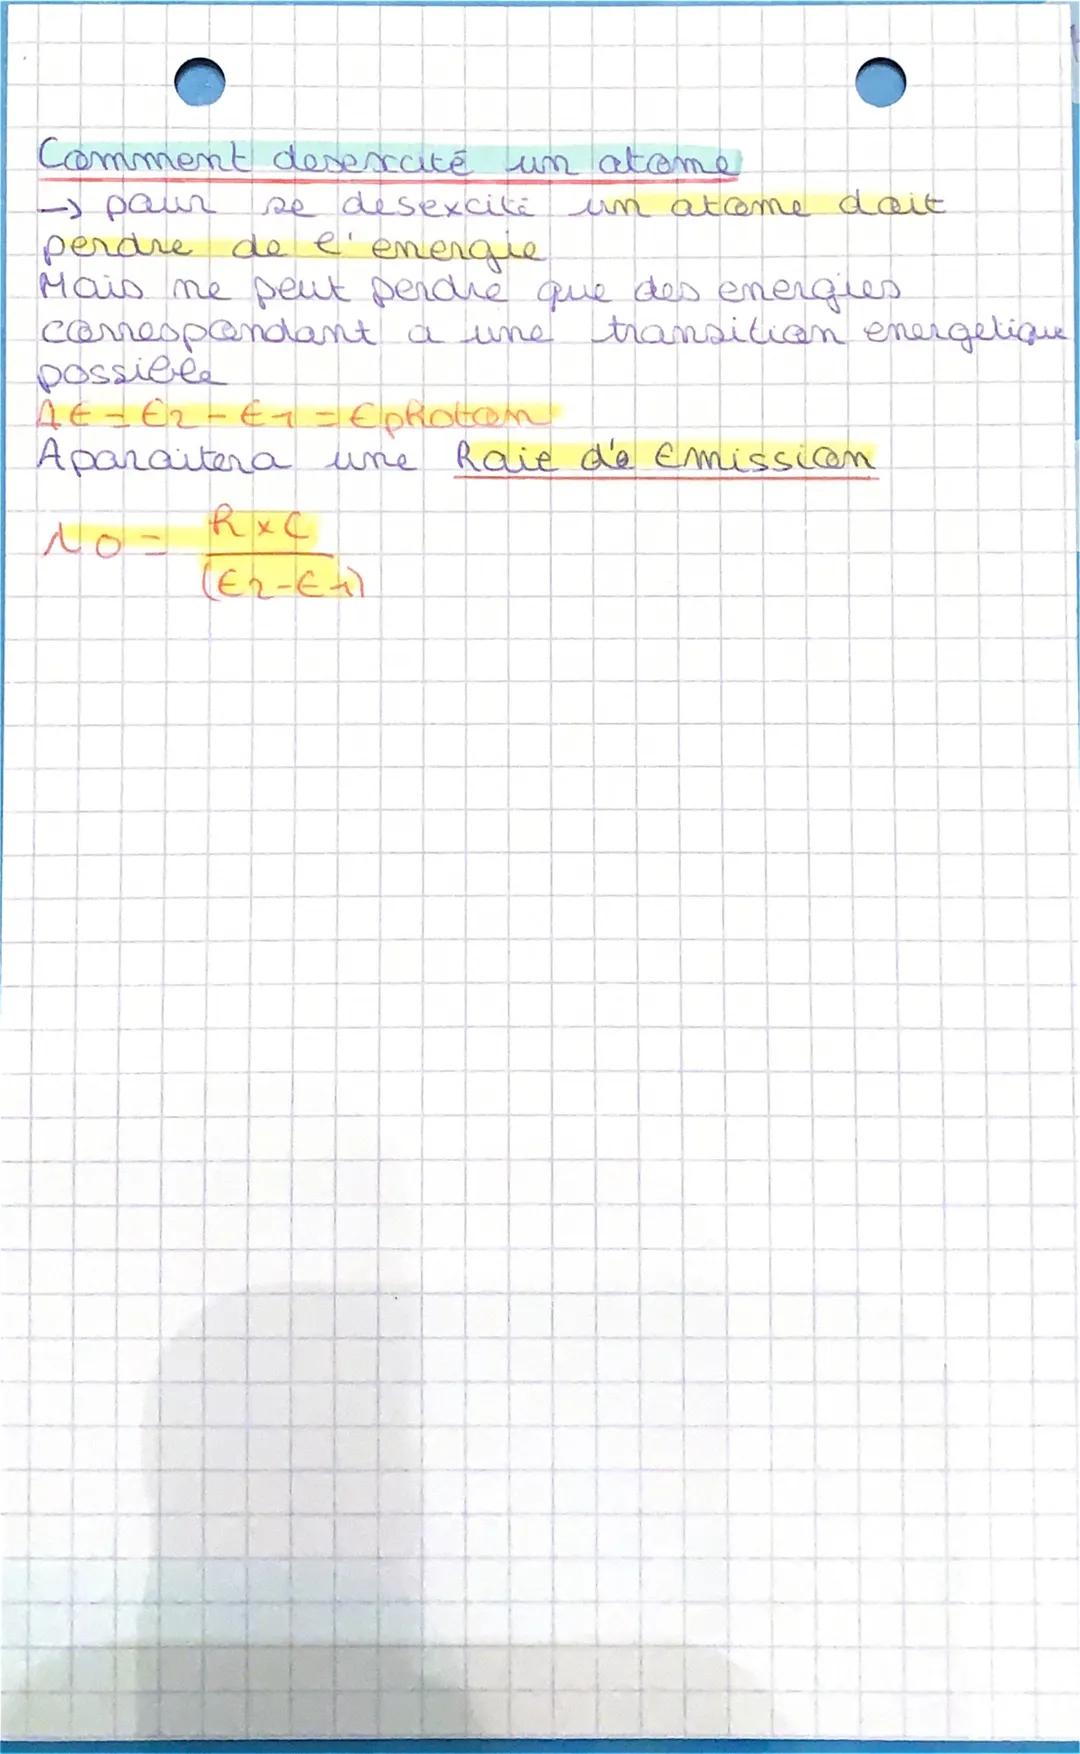 Comment desexcité un atome
→ pour se desexcité un atome doit
perdre de l'energie
Mais ne peut perdre que des energies
correspondant a une transition energetique
possible
ΔE = E2 - E1 = Ephoton
Aparaitera une Raie de Emission
λ0 = h x C
(E2-E1)